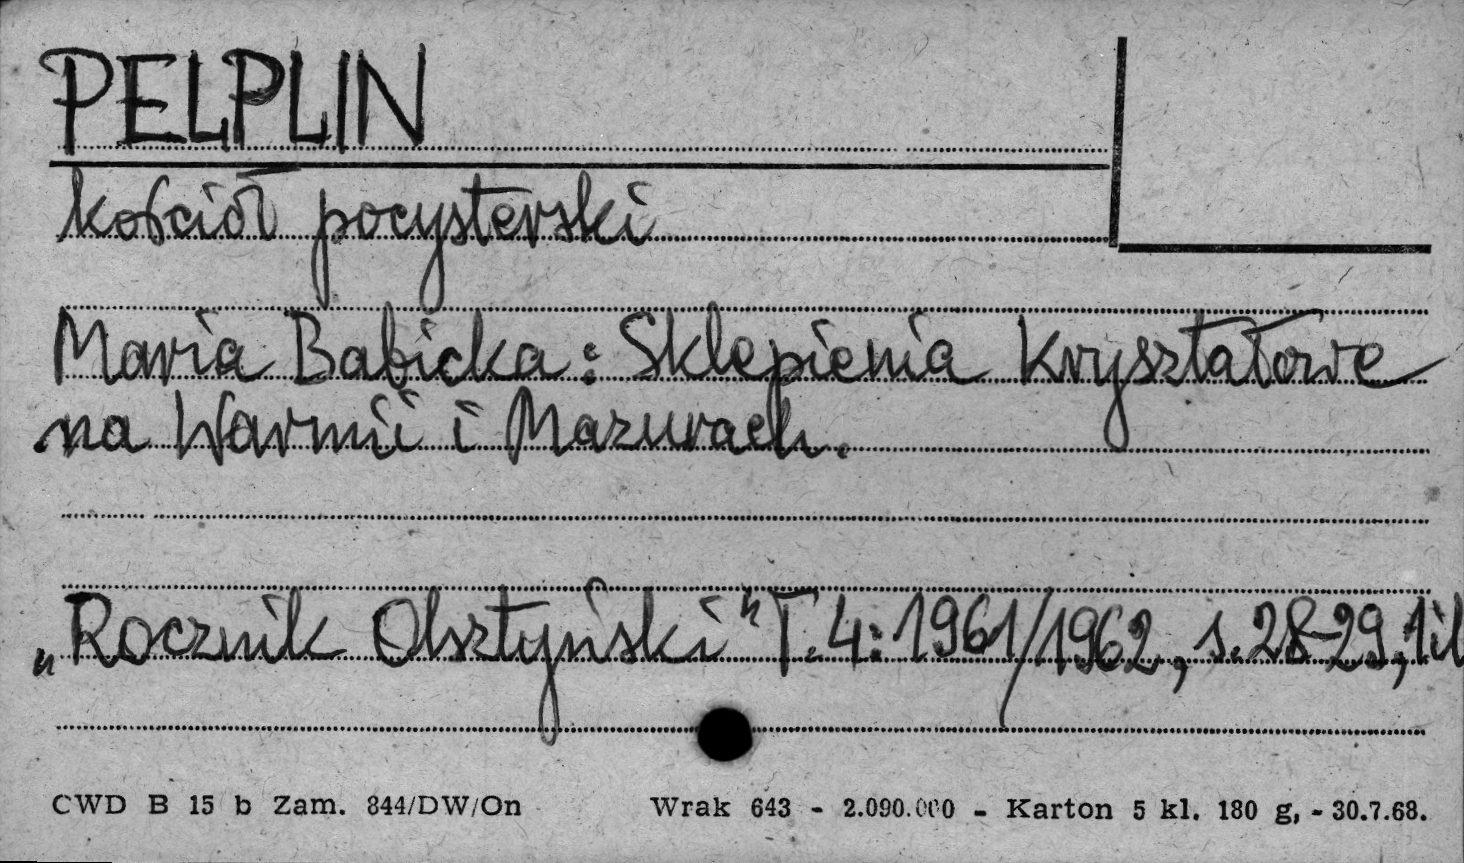 PELPLIN
kościół pocysterski
Maria Babicka: Sklepienia Kryształowe
na Warmii i Mazurach.
„Rocznik Olsztyński" T.4: 1961/1962, s.28-29, 1il
CWD B 15 b Zam. 844/DW/On Wrak 643 - 2.090.000 - Karton 5 kl. 180 g, - 30.7.68.